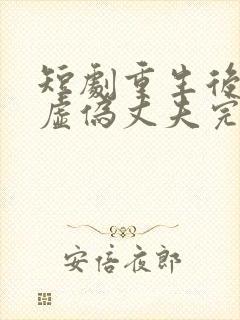 短劇重生後
虛偽丈夫完
安倍夜郎